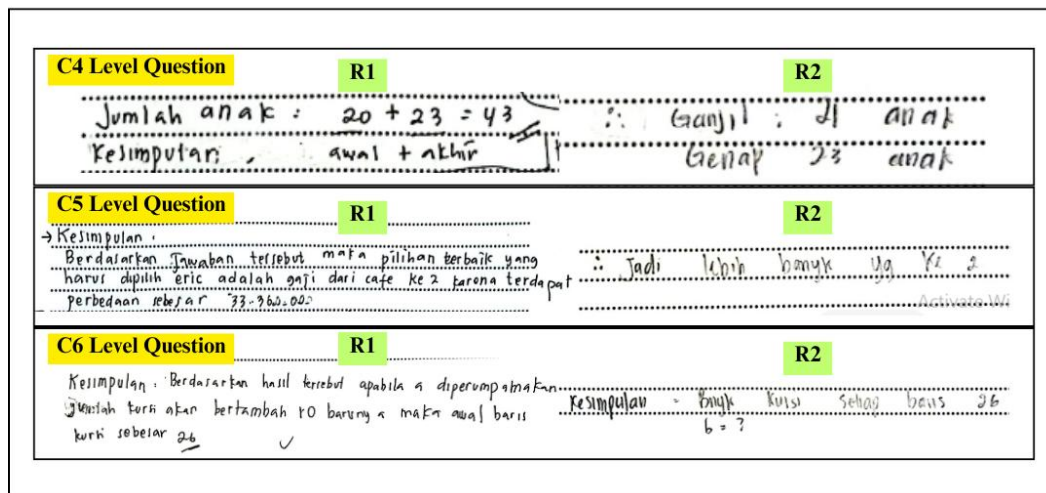 C4 Level Question
R1
R2
Jumlah anak : 20 + 23 = 43
Kesimpulan, awal + akhir
∴ Ganjil : 21 anak
Genap 23 anak
C5 Level Question
R1
R2
→ Kesimpulan.
Berdasarkan Jawaban tersebut maka pilihan terbaik yang
harus dipilih eric adalah gaji dari cafe ke 2 karena terdapat
perbedaan sebesar
∴ Jadi lebih banyk yg ke 2
Activate Wi
C6 Level Question
R1
R2
Kesimpulan : Berdasarkan hasil tersebut apabila a diperumpamakan
kursi akan bertambah maka awal baris
kursi sebesar 26
Kesimpulan = Bnyk kursi setiap baris 26
b = ?